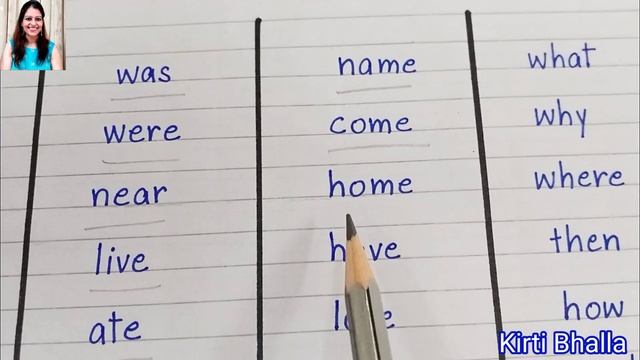 was
were
near
live
ate
name
come
home
have
what
why
where
then
how
Kirti Bhalla